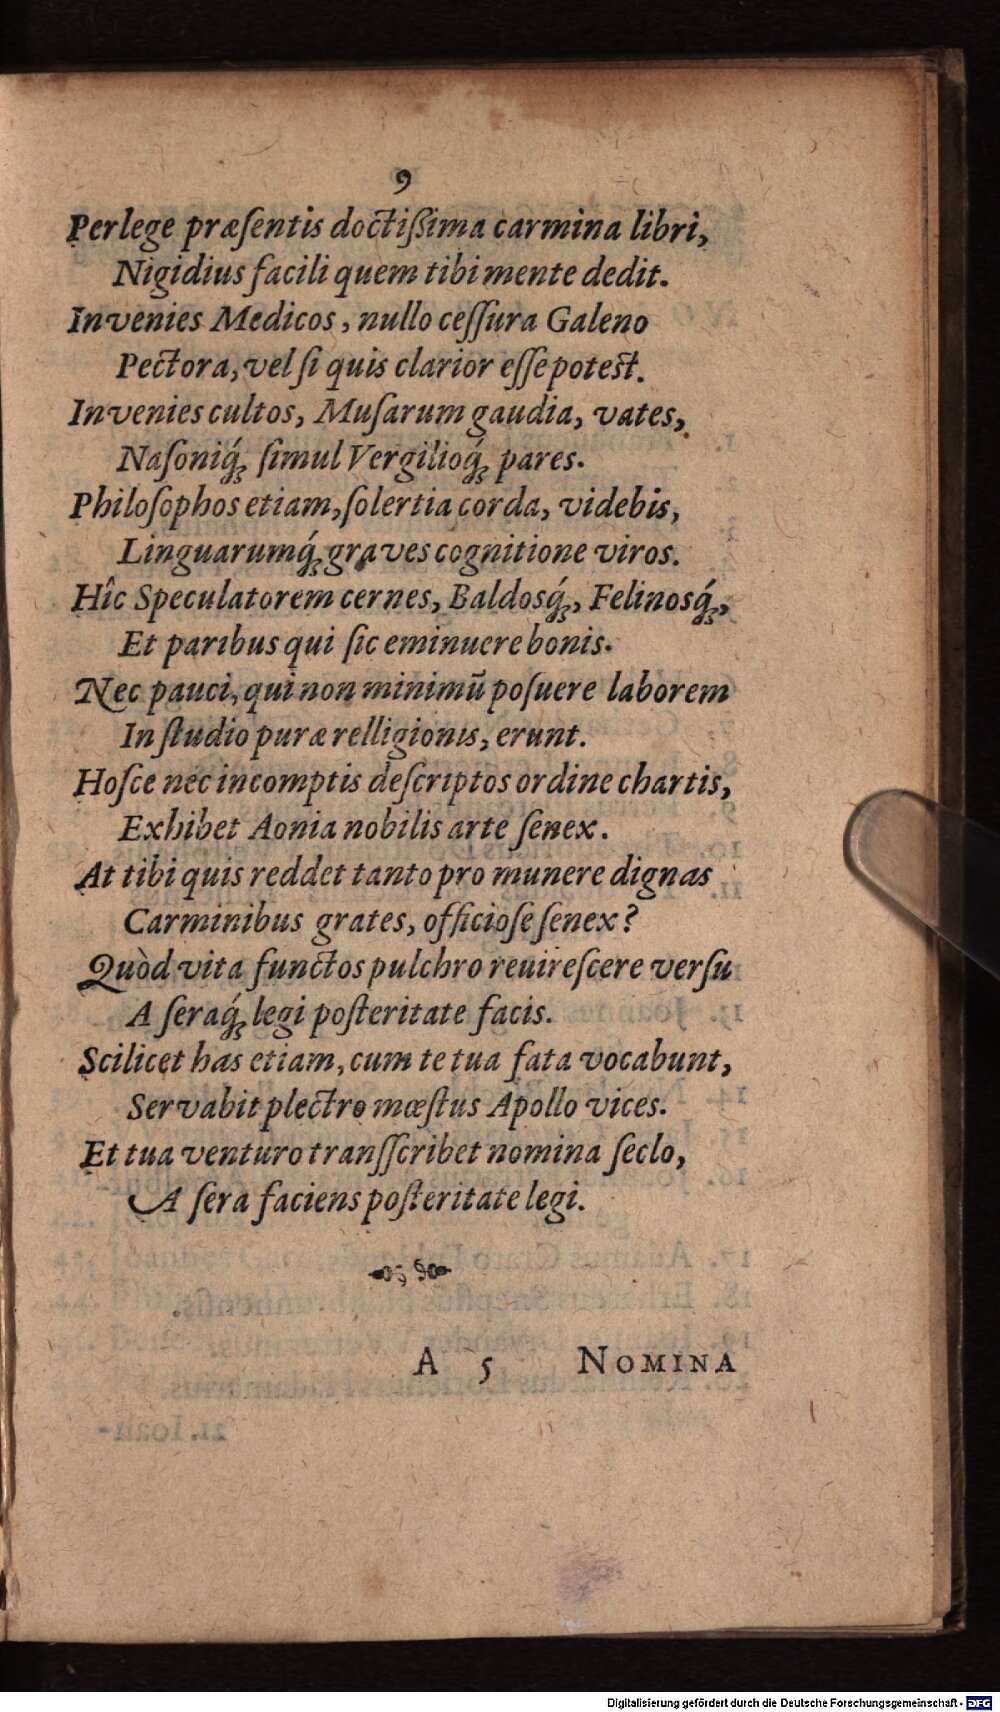 9
Perlege præſentis doctiſſima carmina libri,
Nigidius facili quem tibi mente dedit.
Invenies Medicos, nullo ceſſura Galeno
Pectora, vel ſi quis clarior eſſe poteſt.
Invenies cultos, Muſarum gaudia, vates,
Naſoniq́ꝫ ſimul Vergilioq́ꝫ pares.
Philoſophos etiam, ſolertia corda, videbis,
Linguarumq́ꝫ graves cognitione viros.
Hîc Speculatorem cernes, Baldosq́ꝫ, Felinosq́ꝫ,
Et paribus qui ſic eminuere bonis.
Nec pauci, qui non minimū poſuere laborem
In ſtudio puræ relligionis, erunt.
Hoſce nec incomptis deſcriptos ordine chartis,
Exhibet Aonia nobilis arte ſenex.
At tibi quis reddet tanto pro munere dignas
Carminibus grates, officioſe ſenex?
Quòd vita functos pulchro reuireſcere verſu
A ſeraq́ꝫ legi poſteritate facis.
Scilicet has etiam, cum te tua fata vocabunt,
Servabit plectro mœſtus Apollo vices.
Et tua venturo transſcribet nomina ſeclo,
A ſera faciens poſteritate legi.
A 5 NOMINA
Digitalisierung gefördert durch die Deutsche Forschungsgemeinschaft - DFG